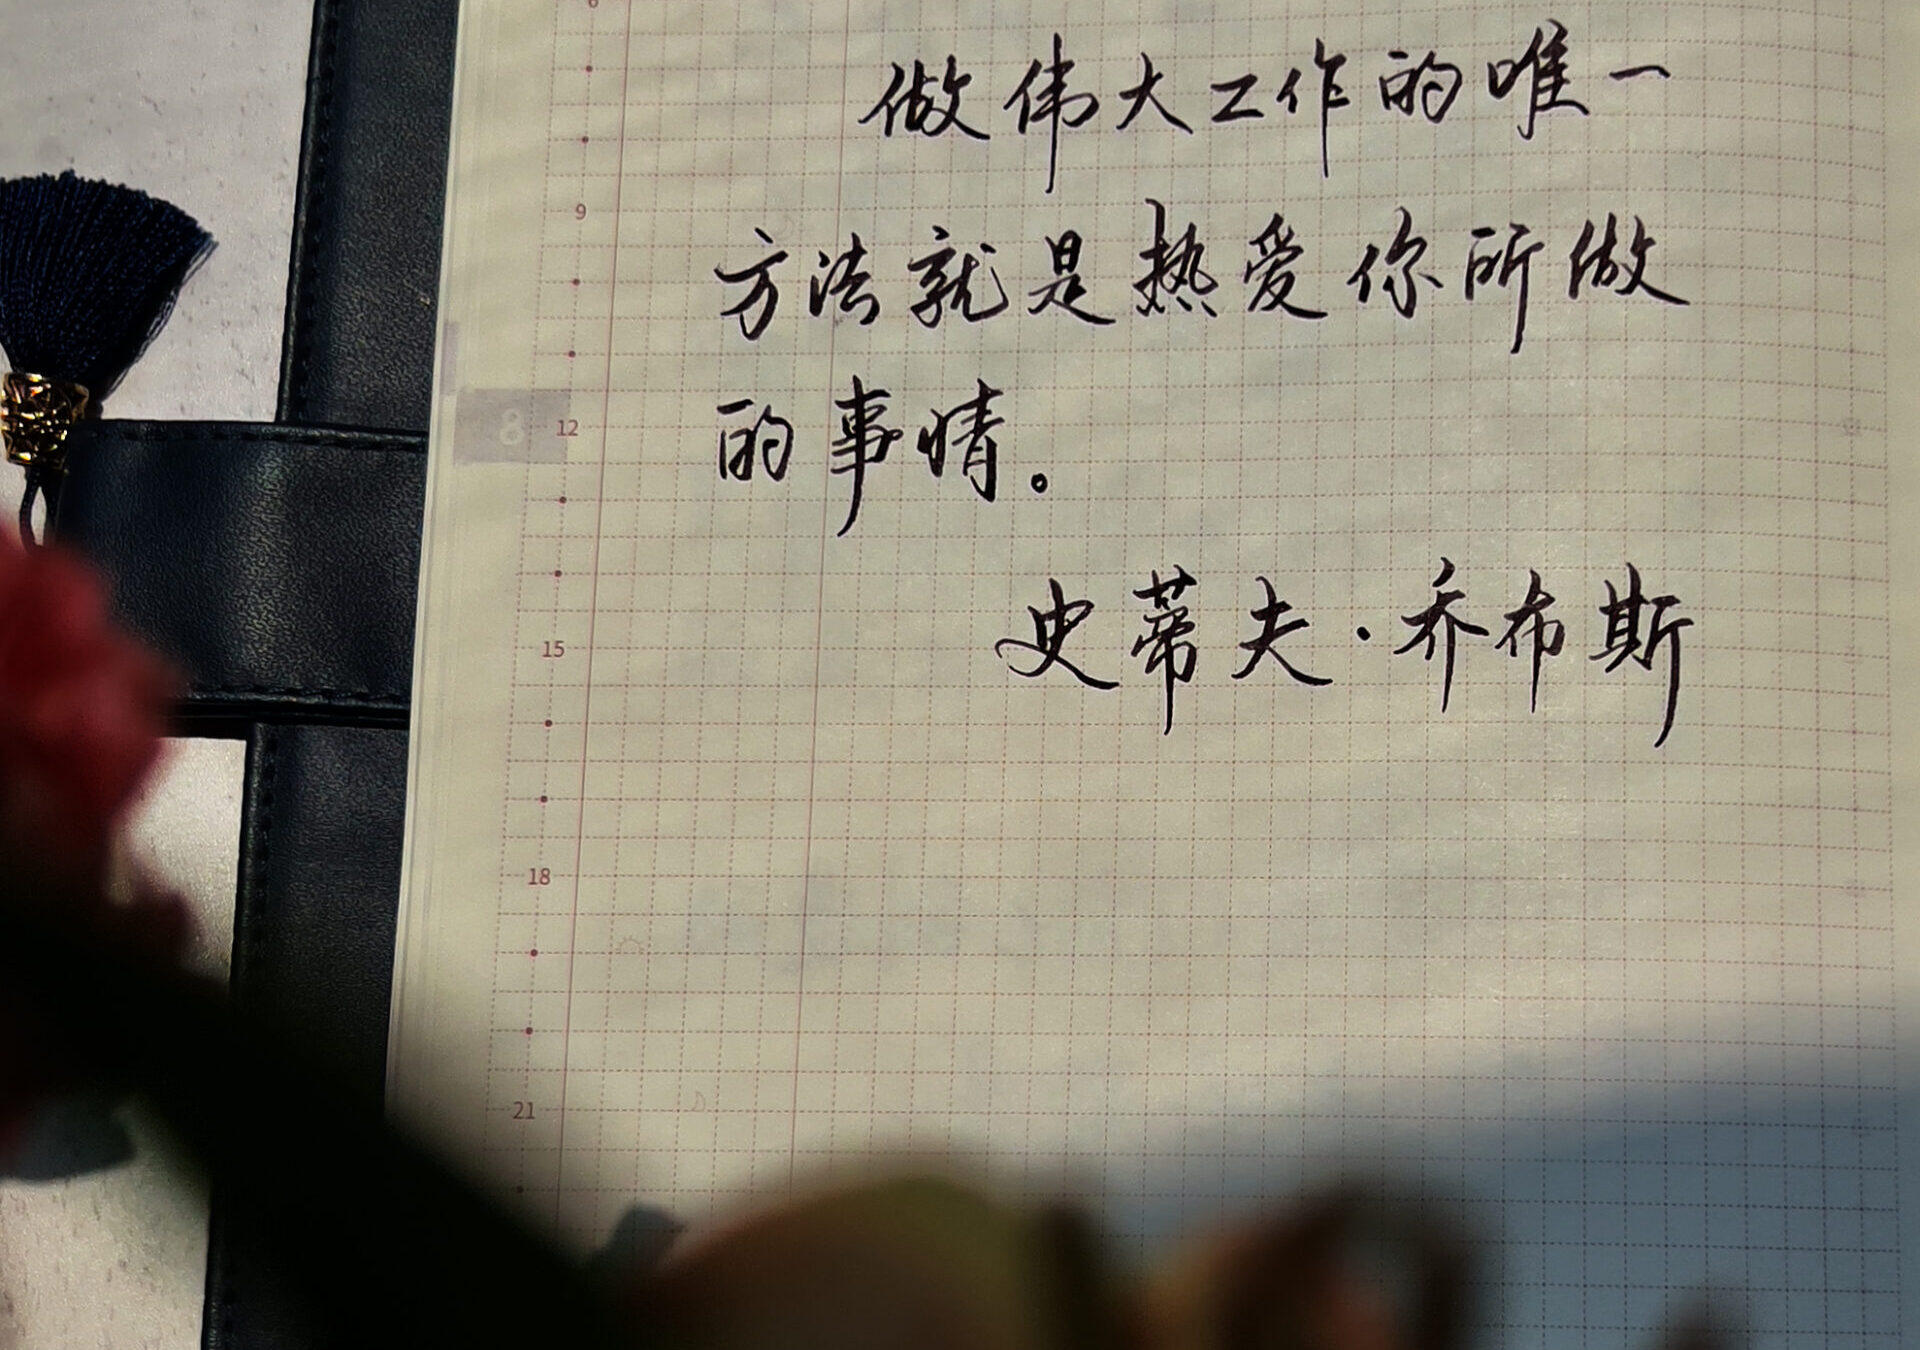 6
做伟大工作的唯一
9
方法就是热爱你所做
8
12
的事情。
15
史蒂夫·乔布斯
18
21